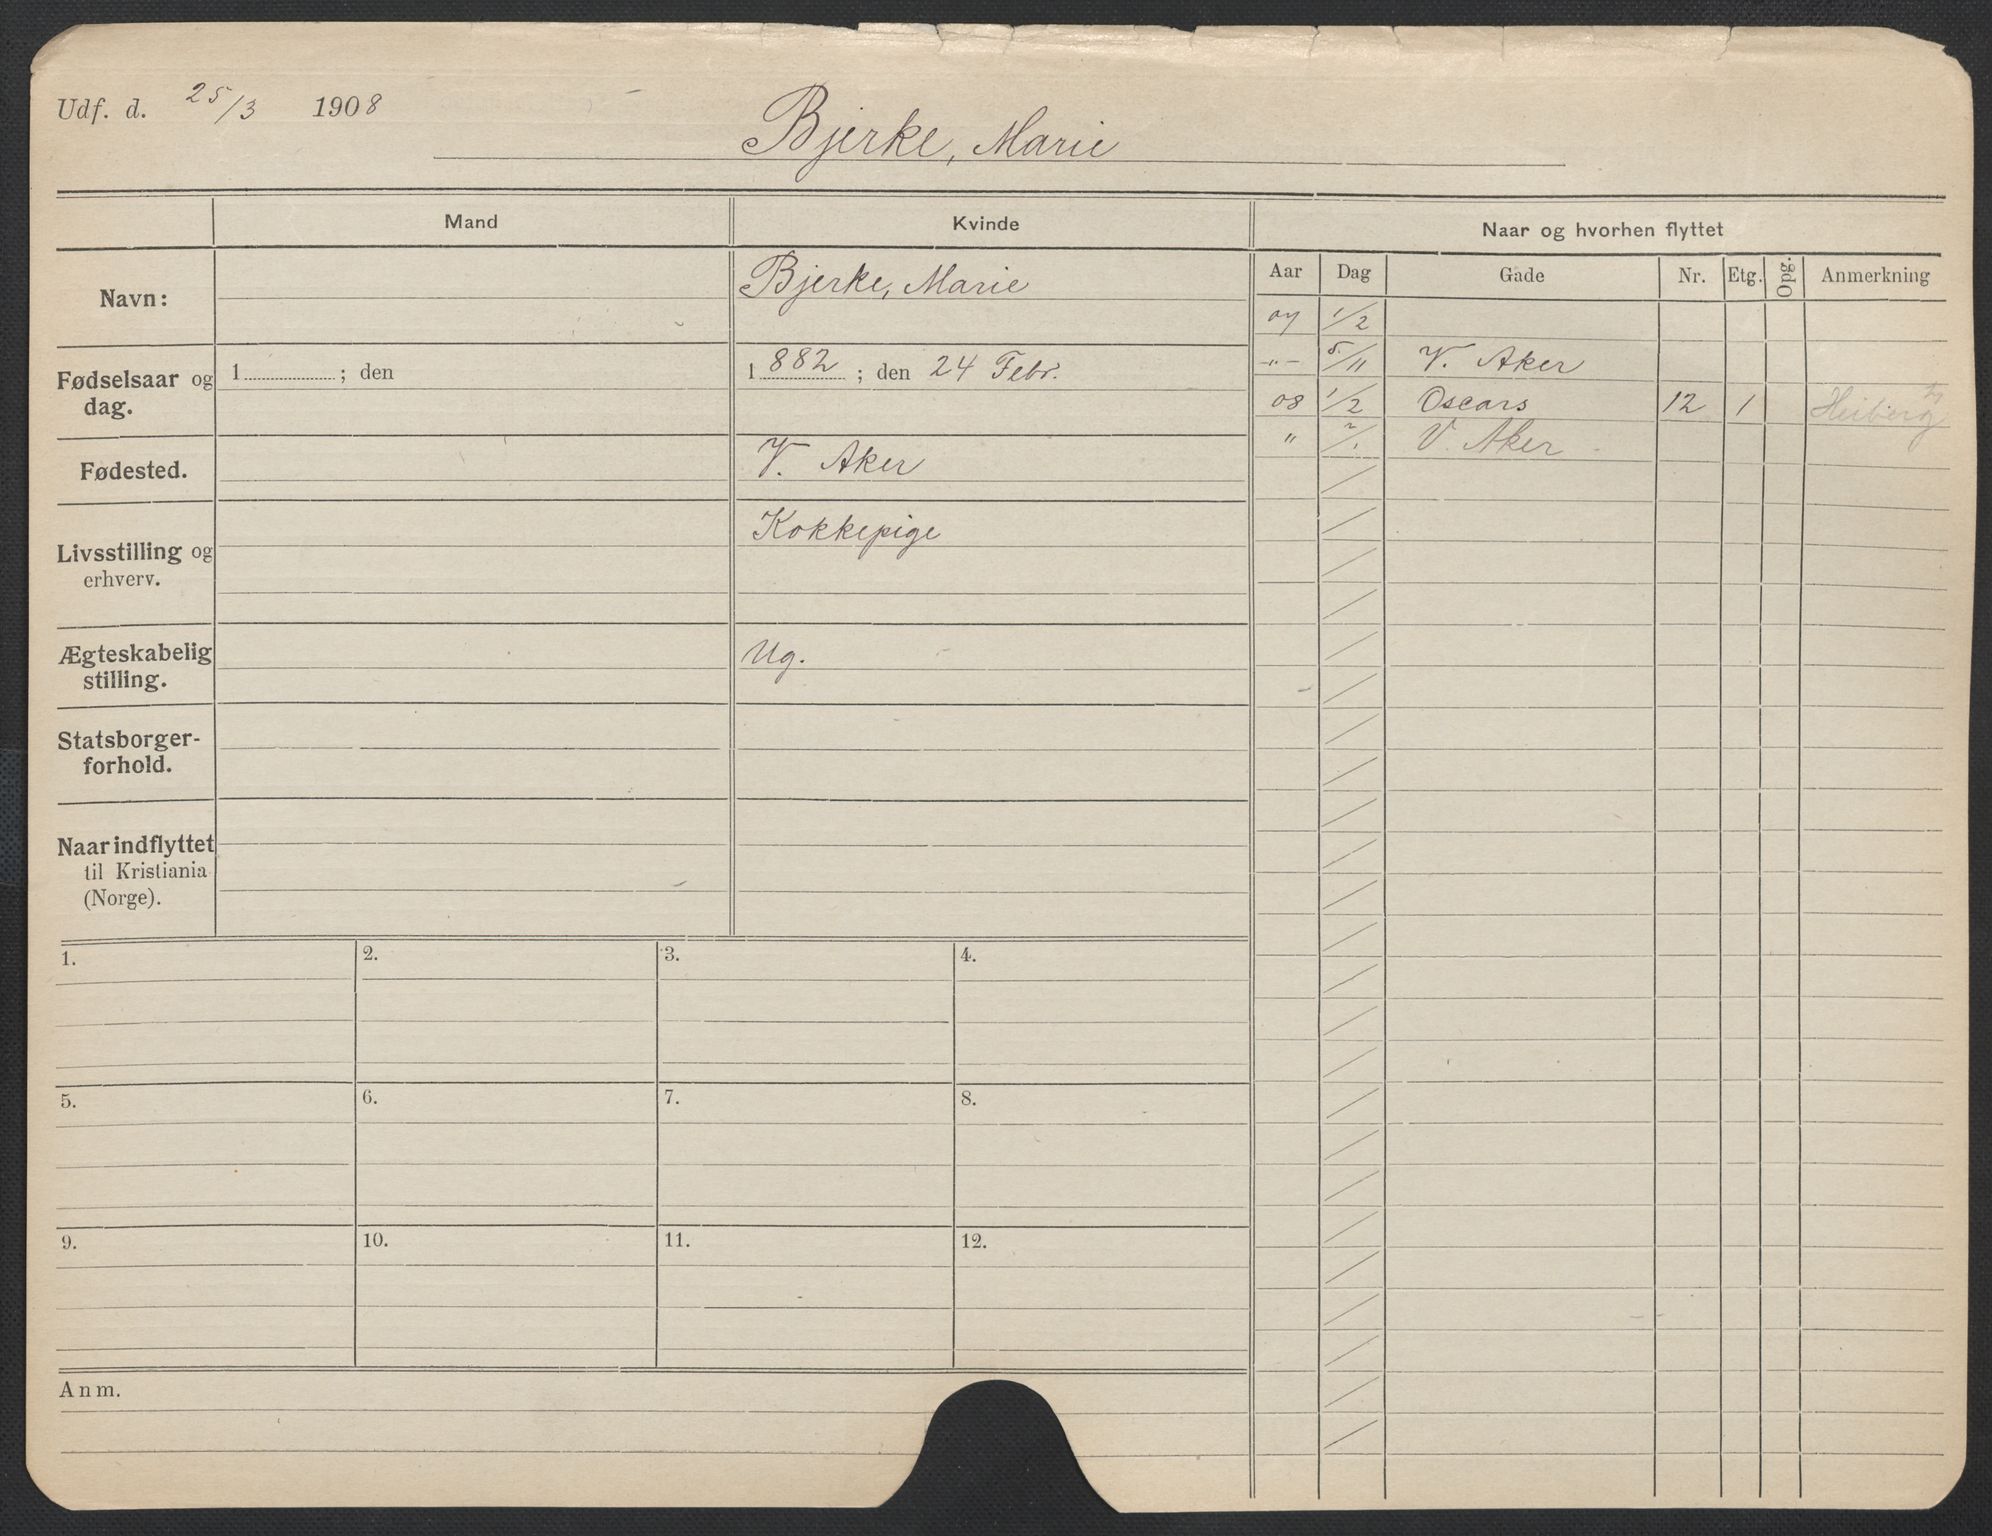 Udf. d. 25/3 1908
Bjerke, Marie
Mand
Kvinde
Naar og hvorhen flyttet
Aar Dag Gade Nr. Etg. Opg. Anmerkning
Navn:
Bjerke, Marie
07 1/2
-"- 5/11 V. Aker
Fødselsaar og
dag.
1 ; den
1882 ; den 24 Febr.
08 1/2 Oscars 12 1 Heiberg
" V. Aker
Fødested.
V. Aker
Livsstilling og
erhverv.
Kokkepige
Ægteskabelig
stilling.
Ug.
Statsborger-
forhold.
Naar indflyttet
til Kristiania
(Norge).
1. 2. 3. 4.
5. 6. 7. 8.
9. 10. 11. 12.
Anm.